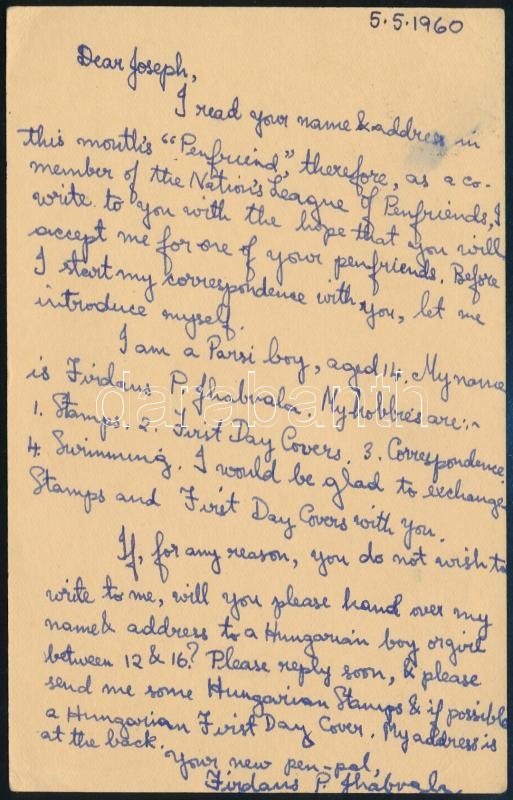 5.5.1960
Dear Joseph,
I read your name & address in
this month's "Penfriend", therefore, as a co-
member of the Nation's League of Penfriends, I
write to you with the hope that you will
accept me for one of your penfriends. Before
I start my correspondence with you, let me
introduce myself.
I am a Parsi boy, aged 14. My name
is Firdaus P. Jhabvala. My hobbies are:-
1. Stamps. 2. First Day Covers. 3. Correspondence
4. Swimming. I would be glad to exchange
Stamps and First Day Covers with you.
If, for any reason, you do not wish to
write to me, will you please hand over my
name & address to a Hungarian boy or girl
between 12 & 16? Please reply soon, & please
send me some Hungarian Stamps & if possible
a Hungarian First Day Cover. My address is
at the back.
Your new pen-pal,
Firdaus P. Jhabvala
darabanth